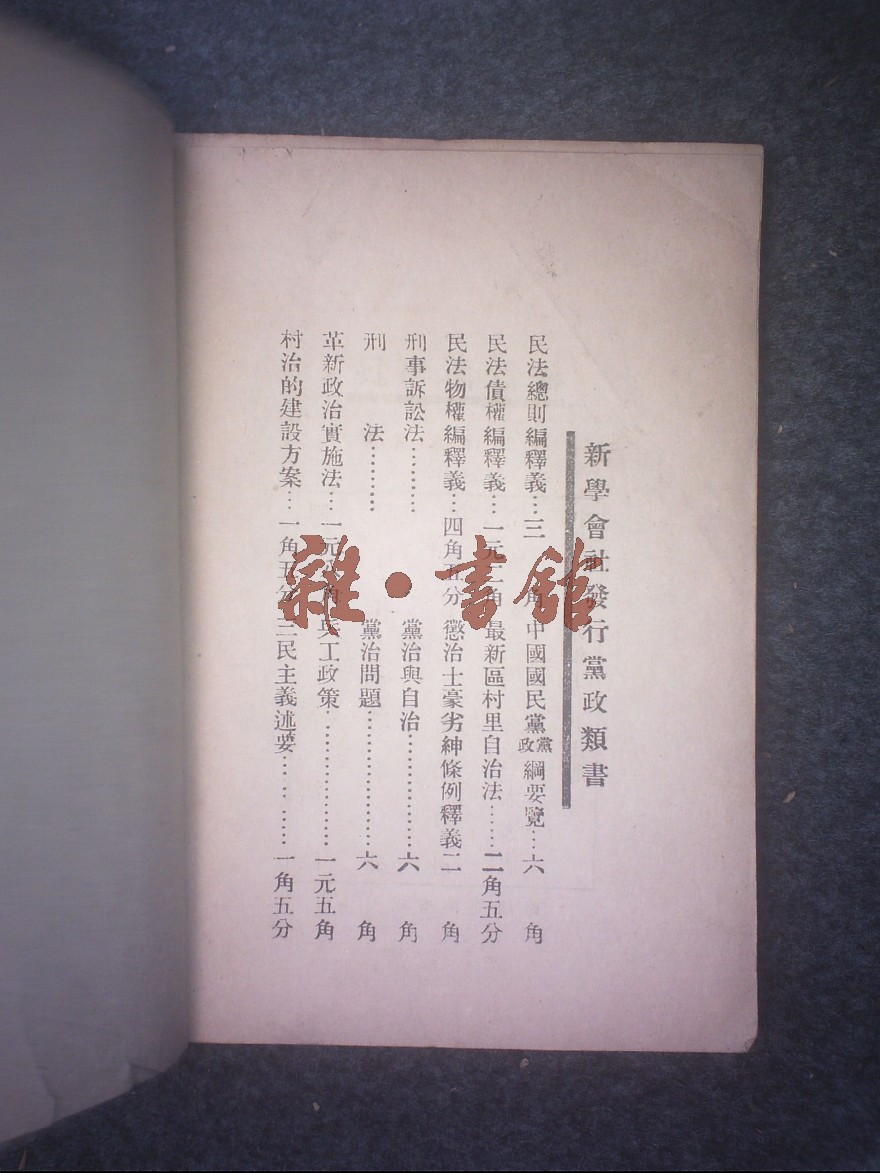 新學會社發行黨政類書
民法總則編釋義…三角 中國國民黨黨政綱要覽…六角
民法債權編釋義…一元二角 最新區村里自治法……二角五分
民法物權編釋義…四角五分 懲治土豪劣紳條例釋義二角
刑事訴訟法……… 黨治與自治……………六角
刑法……… 黨治問題…………………六角
革新政治實施法…一元 角 兵工政策…………………一元五角
村治的建設方案…一角五分 三民主義述要………一角五分
雜·書館